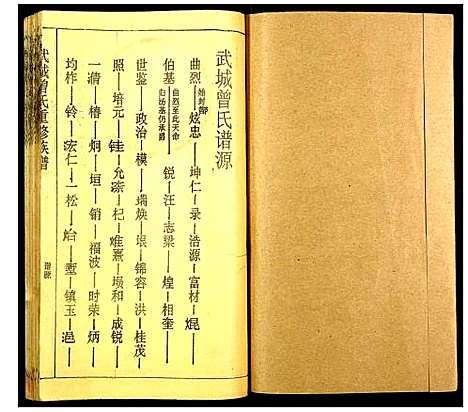 武城曾氏谱源
曲烈 始封鄫 炫忠 坤仁 录 浩源 富材 焜
伯基 曲烈至此天命归汤基仍承爵 锐 汪 志梁 煌 相奎
世鉴 政治 模 焕 垠 锦容 洪 桂茂
照 培元 铿 允 杞 难熹 埙和 成锐
一清 椿 炯 垣 销 福波 时荣 炳
均柞 铃 宏仁 一松 炲 垔 镇玉
武城曾氏重修族谱
谱源